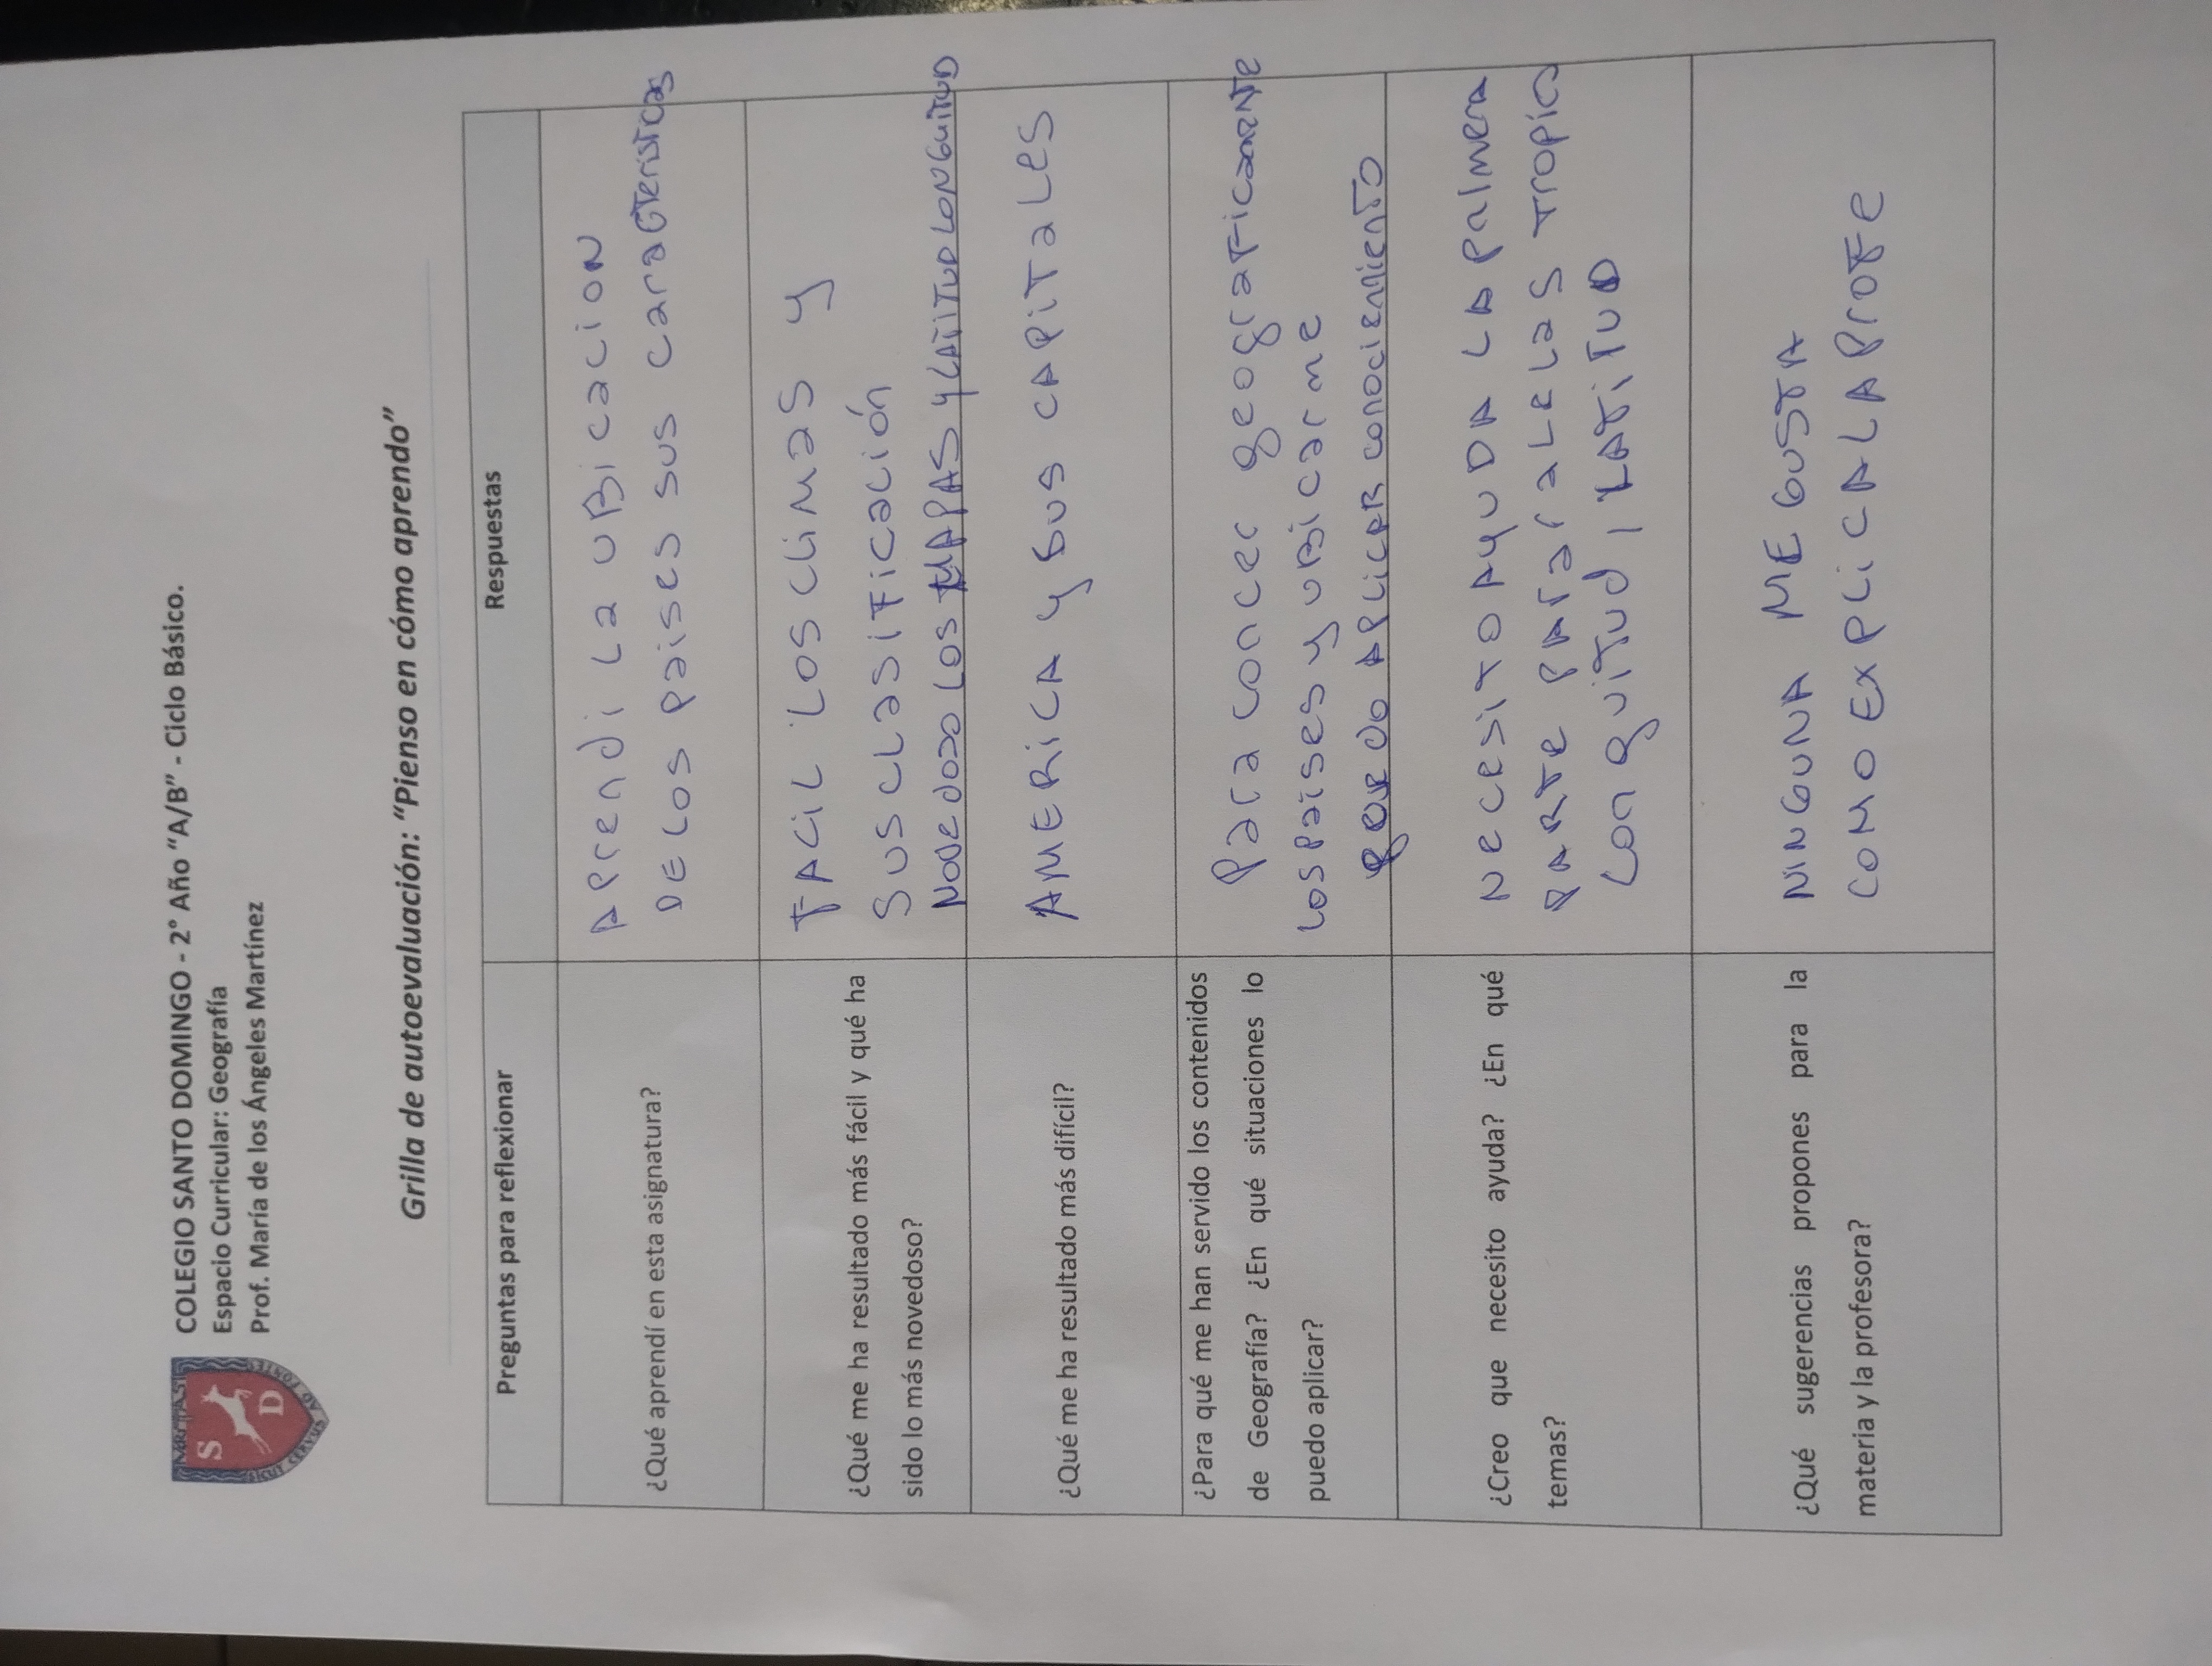 VERITAS
S
D
SICUT CERVUS AD FONTES
COLEGIO SANTO DOMINGO - 2° Año "A/B" - Ciclo Básico.
Espacio Curricular: Geografía
Prof. María de los Ángeles Martínez
Grilla de autoevaluación: "Pienso en cómo aprendo"
Preguntas para reflexionar
Respuestas
¿Qué aprendí en esta asignatura?
Aprendi La uBicacion
DE Los paises sus caracteristicas
¿Qué me ha resultado más fácil y qué ha
sido lo más novedoso?
FACIL Los climas y
Sus clasificación
Novedoso los MAPAS y LATITUD LONGUITUD
¿Qué me ha resultado más difícil?
AMERICA y sus CAPITALES
¿Para qué me han servido los contenidos
de Geografía? ¿En qué situaciones lo
puedo aplicar?
Para concer geograficamente
Los paises y uBicarme
APLICAR conocimiento
¿Creo que necesito ayuda? ¿En qué
temas?
Necesito AYUDA LA palmera
PARTE PArALeLas Tropico
Longuitud / LATITUD
¿Qué sugerencias propones para la
materia y la profesora?
NINGUNA ME GUSTA
COMO EXPLICA LA PROFE